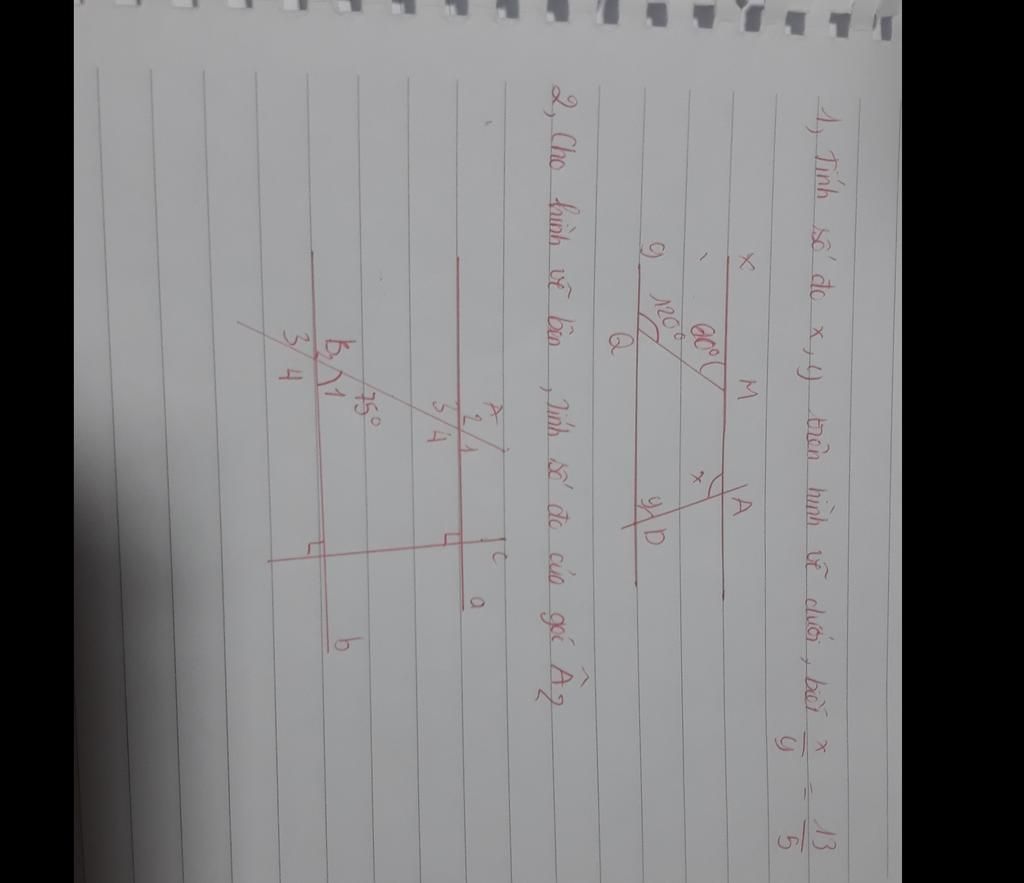 1, Tính số đo x, y trên hình vẽ dưới, biết x/y = 13/5
x M A
60° x
120° y
y Q D
2, Cho hình vẽ bên, tính số đo của góc Â2
A c
2 1
3 4 a
75°
B 1 b
3 4